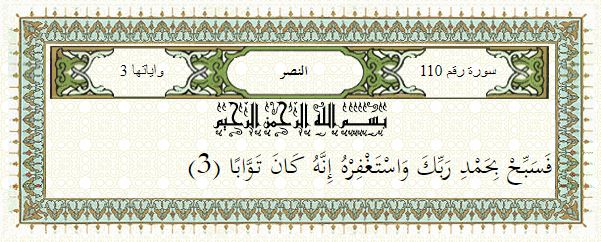 سورة رقم 110 النصر وآياتها 3
بسم الله الرحمن الرحيم
فَسَبِّحْ بِحَمْدِ رَبِّكَ وَاسْتَغْفِرْهُ إِنَّهُ كَانَ تَوَّابًا (3)